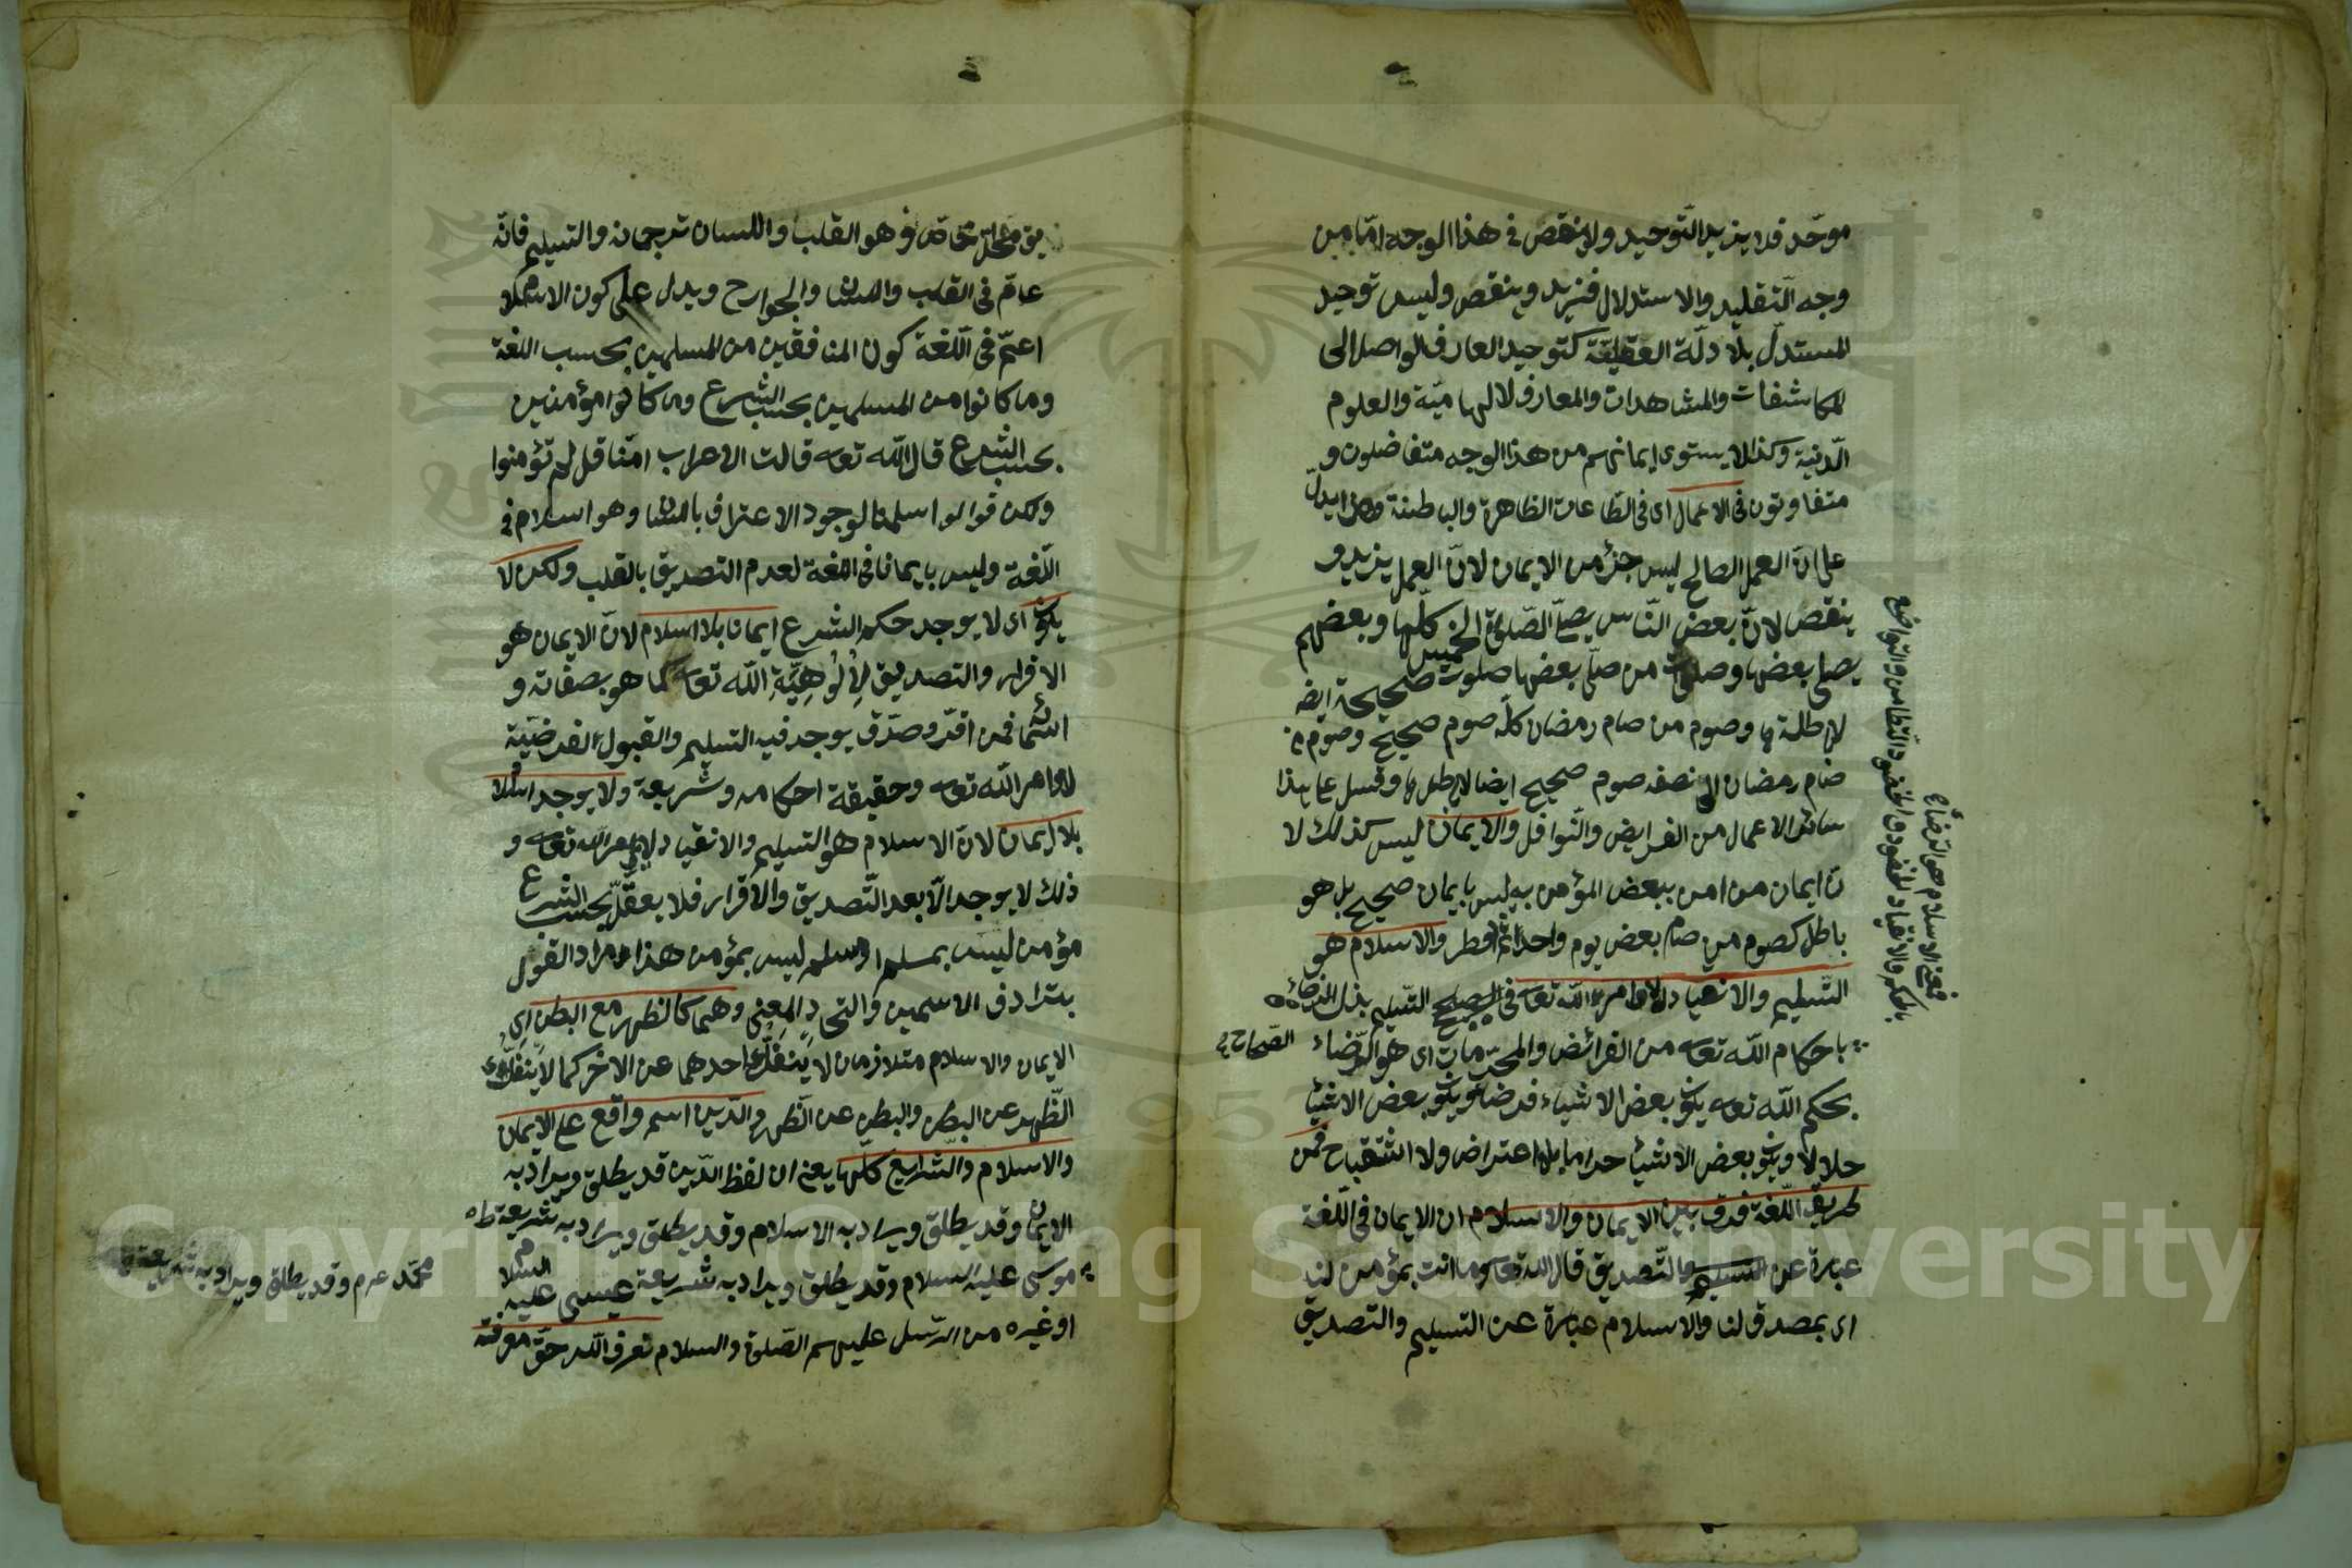 موحّد فلا يزيد التّوحيد ولا ينقص في هذا الوجه امّا من
وجه التّقليد والاستدلال فيزيد وينقص وليس توحيد
المستدلّ بلادلّة العقليّة كتوحيد العارف الواصل الى
المكاشفات والمشاهدات والمعارف لالهاميّة والعلوم
الّدنية وكذا لا يستوى ايمانهم من هذا الوجه متفاضلون و
متفاوتون في الاعمال اى في الطّاعات الظاهرة والباطنة وهذا يدلّ
على انّ العمل الصالح ليس جزء من الايمان لانّ العمل يزيد و
ينقص لانّ بعض النّاس يصلّى الصّلوة الخمس كلّها وبعضهم
يصلى بعضها وصلوة من صلّى بعضها صلوة صحيحة ايضا
لا باطلة وصوم من صام رمضان كلّه صوم صحيح وصوم من
صام رمضان الى نصفه صوم صحيح ايضا لا باطل وقس على هذا
سائر الاعمال من الفرايض والنّوافل والايمان ليس كذلك لا
نّ ايمان من امن ببعض المؤمن به ليس بايمان صحيح بل هو
باطل كصوم من صام بعض يوم واحد ثمّ افطر والاسلام هو
التّسليم والانقياد لاوامر الله تعه في الصحاح التّسليم بذل الرضاء
باحكام الله تعه من الفرائض والمحرّمات اى هو الرّضاء
بحكم الله تعه يكون بعض الاشياء فرضا ويكون بعض الاشيا
حلالا ويكون بعض الاشيا حراما بلا اعتراض ولا استقباح فمن
طريق اللّغة فرق بين الايمان والاسلام ان الايمان في اللّغة
عبارة عن التّصديق قال الله تعه وما انت بمؤمن لنا
اى بمصدق لنا والاسلام عبارة عن التسليم والتصديق
فمعنى الاسلام هو الرّضاء
بالحكم والانقياد
الصّحاح
محلّ خاصّ وهو القلب واللسان ترجمانه والتسليم فانّه
عامّ في القلب واللسان والجوارح ويدل على كون الاسلام
اعمّ في اللّغة كون المنافقين من المسلمين بحسب اللغة
وما كانوا من المسلمين بحسب الشرع وما كانوا مؤمنين
بحسب الشرع قال الله تعه قالت الاعراب امنّا قل لم تؤمنوا
ولكن قولوا اسلمنا لوجود الاعتراف باللسان وهو اسلام في
اللّغة وليس بايمان في اللغة لعدم التصديق بالقلب ولكن لا
يكون اى لا يوجد حكم الشرع ايمان بلا اسلام لانّ الايمان هو
الاقرار والتصديق لِاُلُوهِيَّةِ الله تعه كما هو بصفاته و
اسمائه فمن اقرّ وصدّق يوجد فيه التسليم والقبول الفرضيّة
لاوامر الله تعه وحقيقة احكامه وشريعة ولا يوجد اسلام
بلا ايمان لانّ الاسلام هو التسليم والانقياد لاوامر الله تعه و
ذلك لا يوجد الّا بعد التّصديق والاقرار فلا يعقل بحسب الشرع
مؤمن ليس بمسلم او مسلم ليس بمؤمن هذا مراد القول
بترادف الاسمين والتحاد المعنى وهما كالظهر مع البطن اى
الايمان والاسلام متلازمان لا ينفكّ احدهما عن الاخر كما لا ينفكّ
الظّهر عن البطن والبطن عن الظهر والدّين اسم واقع على الايمان
والاسلام والشّرايع كلّها يعنى ان لفظ الدّين قد يطلق ويراد به
الايمان وقد يطلق ويراد به الاسلام وقد يطلق ويراد به شريعة
موسى عليه السلام وقد يطلق ويراد به شريعة عيسى عليه السلام
او غيره من الرّسل عليهم الصّلوة والسلام نعرف الله حقّ معرفته
محمّد عم وقد يطلق ويراد به شريعة